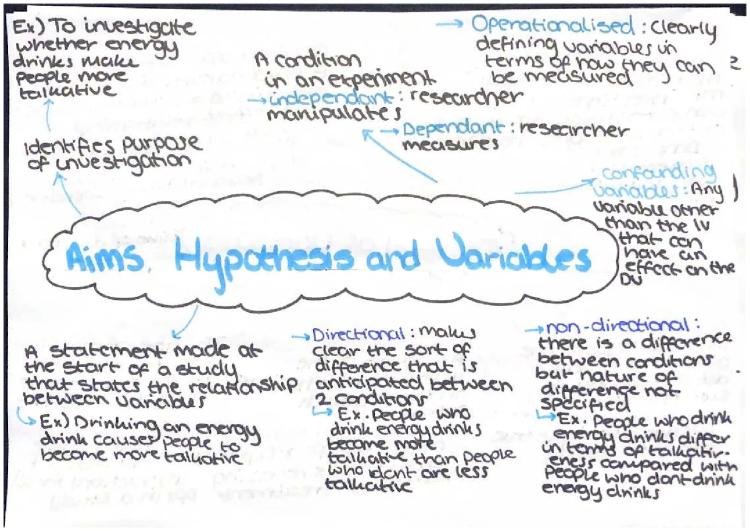 Ex) To investigate
whether energy
drinks make
people more
talkative
Identifies purpose
of investigation
A condition
in an experiment
→independant: researcher
manipulates
→Dependant: researcher
measures
→ Operationalised: Clearly
defining variables in
terms of how they can
be measured
confounding
variables: Any
variable other
than the IV
that can
have an
effect on the
DV
Aims Hypothesis and Variables
A statement made at
the start of a study
that states the relationship
between variables
Ex) Drinking an energy
drink causes people to
become more talkative
→Directional: makes
clear the sort of
difference that is
anticipated between
2 conditions
Ex. People who
drink energy drinks
become more
talkative than people
who idont are less
talkative
→non-directional:
there is a difference
between conditions
but nature of
difference not
specified
Ex. People who drink
energy drinks differ
in terms of talkativ-
eness compared with
people who dont drink
energy drinks